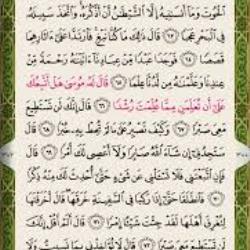 ٱلْحُوتَ وَمَآ أَنسَىٰنِيهُ إِلَّا ٱلشَّيْطَٰنُ أَنْ أَذْكُرَهُۥ وَٱتَّخَذَ سَبِيلَهُۥ
فِى ٱلْبَحْرِ عَجَبًا ٦٣ قَالَ ذَٰلِكَ مَا كُنَّا نَبْغِ فَٱرْتَدَّا عَلَىٰٓ ءَاثَارِهِمَا
قَصَصًا ٦٤ فَوَجَدَا عَبْدًا مِّنْ عِبَادِنَآ ءَاتَيْنَٰهُ رَحْمَةً مِّنْ
عِندِنَا وَعَلَّمْنَٰهُ مِن لَّدُنَّا عِلْمًا ٦٥ قَالَ لَهُۥ مُوسَىٰ هَلْ أَتَّبِعُكَ
عَلَىٰٓ أَن تُعَلِّمَنِ مِمَّا عُلِّمْتَ رُشْدًا ٦٦ قَالَ إِنَّكَ لَن تَسْتَطِيعَ
مَعِىَ صَبْرًا ٦٧ وَكَيْفَ تَصْبِرُ عَلَىٰ مَا لَمْ تُحِطْ بِهِۦ خُبْرًا ٦٨ قَالَ
سَتَجِدُنِىٓ إِن شَآءَ ٱللَّهُ صَابِرًا وَلَآ أَعْصِى لَكَ أَمْرًا ٦٩ قَالَ
فَإِنِ ٱتَّبَعْتَنِى فَلَا تَسْـَٔلْنِى عَن شَىْءٍ حَتَّىٰٓ أُحْدِثَ لَكَ مِنْهُ ذِكْرًا
٧٠ فَٱنطَلَقَا حَتَّىٰٓ إِذَا رَكِبَا فِى ٱلسَّفِينَةِ خَرَقَهَا قَالَ أَخَرَقْتَهَا
لِتُغْرِقَ أَهْلَهَا لَقَدْ جِئْتَ شَيْـًٔا إِمْرًا ٧١ قَالَ أَلَمْ أَقُلْ إِنَّكَ
لَن تَسْتَطِيعَ مَعِىَ صَبْرًا ٧٢ قَالَ لَا تُؤَاخِذْنِى بِمَا نَسِيتُ وَلَا